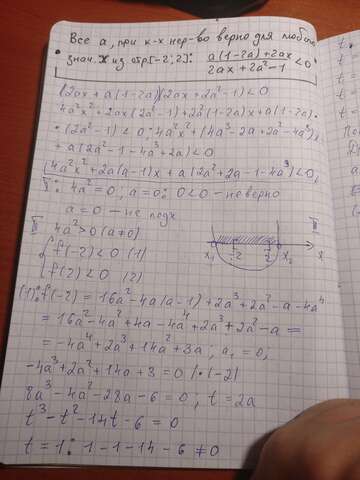 Все a, при к-х нер-во верно для любого
знач. x из отр[-2; 2]: (a(1-2a)+2ax)/(2ax+2a²-1) < 0
(2ax + a(1-2a))(2ax + 2a²-1) < 0
4a²x² + 2ax(2a²-1) + 2a²(1-2a)x + a(1-2a)·
·(2a²-1) < 0; 4a²x² + (4a³-2a+2a²-4a³)x
+ a(2a²-1-4a³+2a) < 0
4a²x² + 2a(a-1)x + a(2a²+2a-1-4a³) < 0;
I: 4a² = 0, a = 0: 0 < 0 - неверно
a = 0 - не подх
II 4a² > 0 (a ≠ 0)
III
{ f(-2) < 0 (1)
f(2) < 0 (2)
x₁ -2 2 x₂ x
(1): f(-2) = 16a² - 4a(a-1) + 2a³ + 2a² - a - 4a⁴
= 16a² - 4a² + 4a - 4a⁴ + 2a³ + 2a² - a =
= -4a⁴ + 2a³ + 14a² + 3a; a₁ = 0,
-4a³ + 2a² + 14a + 3 = 0 |·(-2)
8a³ - 4a² - 28a - 6 = 0; t = 2a
t³ - t² - 14t - 6 = 0
t = 1: 1 - 1 - 14 - 6 ≠ 0